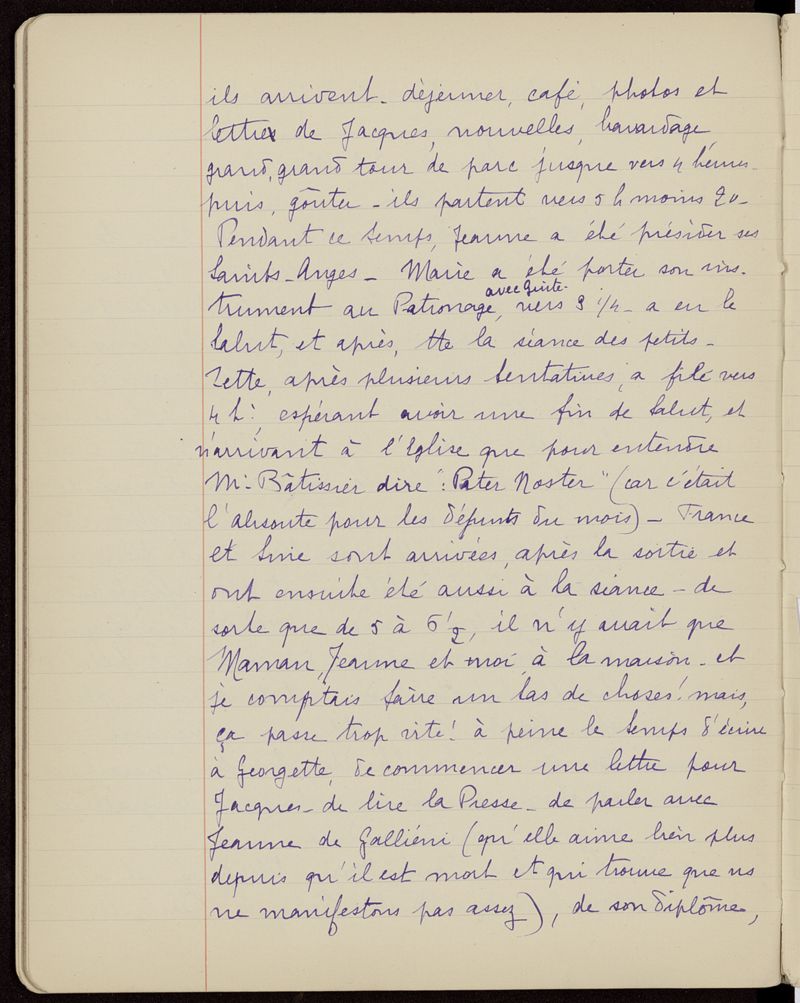 ils arrivent - déjeuner, café, photos et
lettres de Jacques, nouvelles, bavardage
grand, grand tour de parc jusque vers 4 heures -
puis, goûter - ils partent vers 5 h moins 20 -
Pendant ce temps, Jeanne a été présider ses
Saints-Anges - Marie a été porter son ins-
avec Ginte -
trument au Patronage, vers 3 1/4 - a eu le
Salut, et après, tte la séance des petits -
Zette, après plusieurs tentatives, a filé vers
4 h ; espérant avoir une fin de Salut, et
n'arrivant à l'Eglise que pour entendre
Mr Bâtissier dire : "Pater Noster" (car c'était
l'absoute pour les défunts du mois) - France
et Line sont arrivées, après la sortie et
ont ensuite été aussi à la séance - de
sorte que de 5 à 6 1/2, il n'y avait que
Maman, Jeanne et moi à la maison - et
je comptais faire un tas de choses ! mais,
ça passe trop vite ! à peine le temps d'écrire
à Georgette, de commencer une lettre pour
Jacques - de lire la Presse - de parler avec
Jeanne de Galliéni (qu'elle aime bien plus
depuis qu'il est mort et qui trouve que ns
ne manifestons pas assez), de son diplôme,